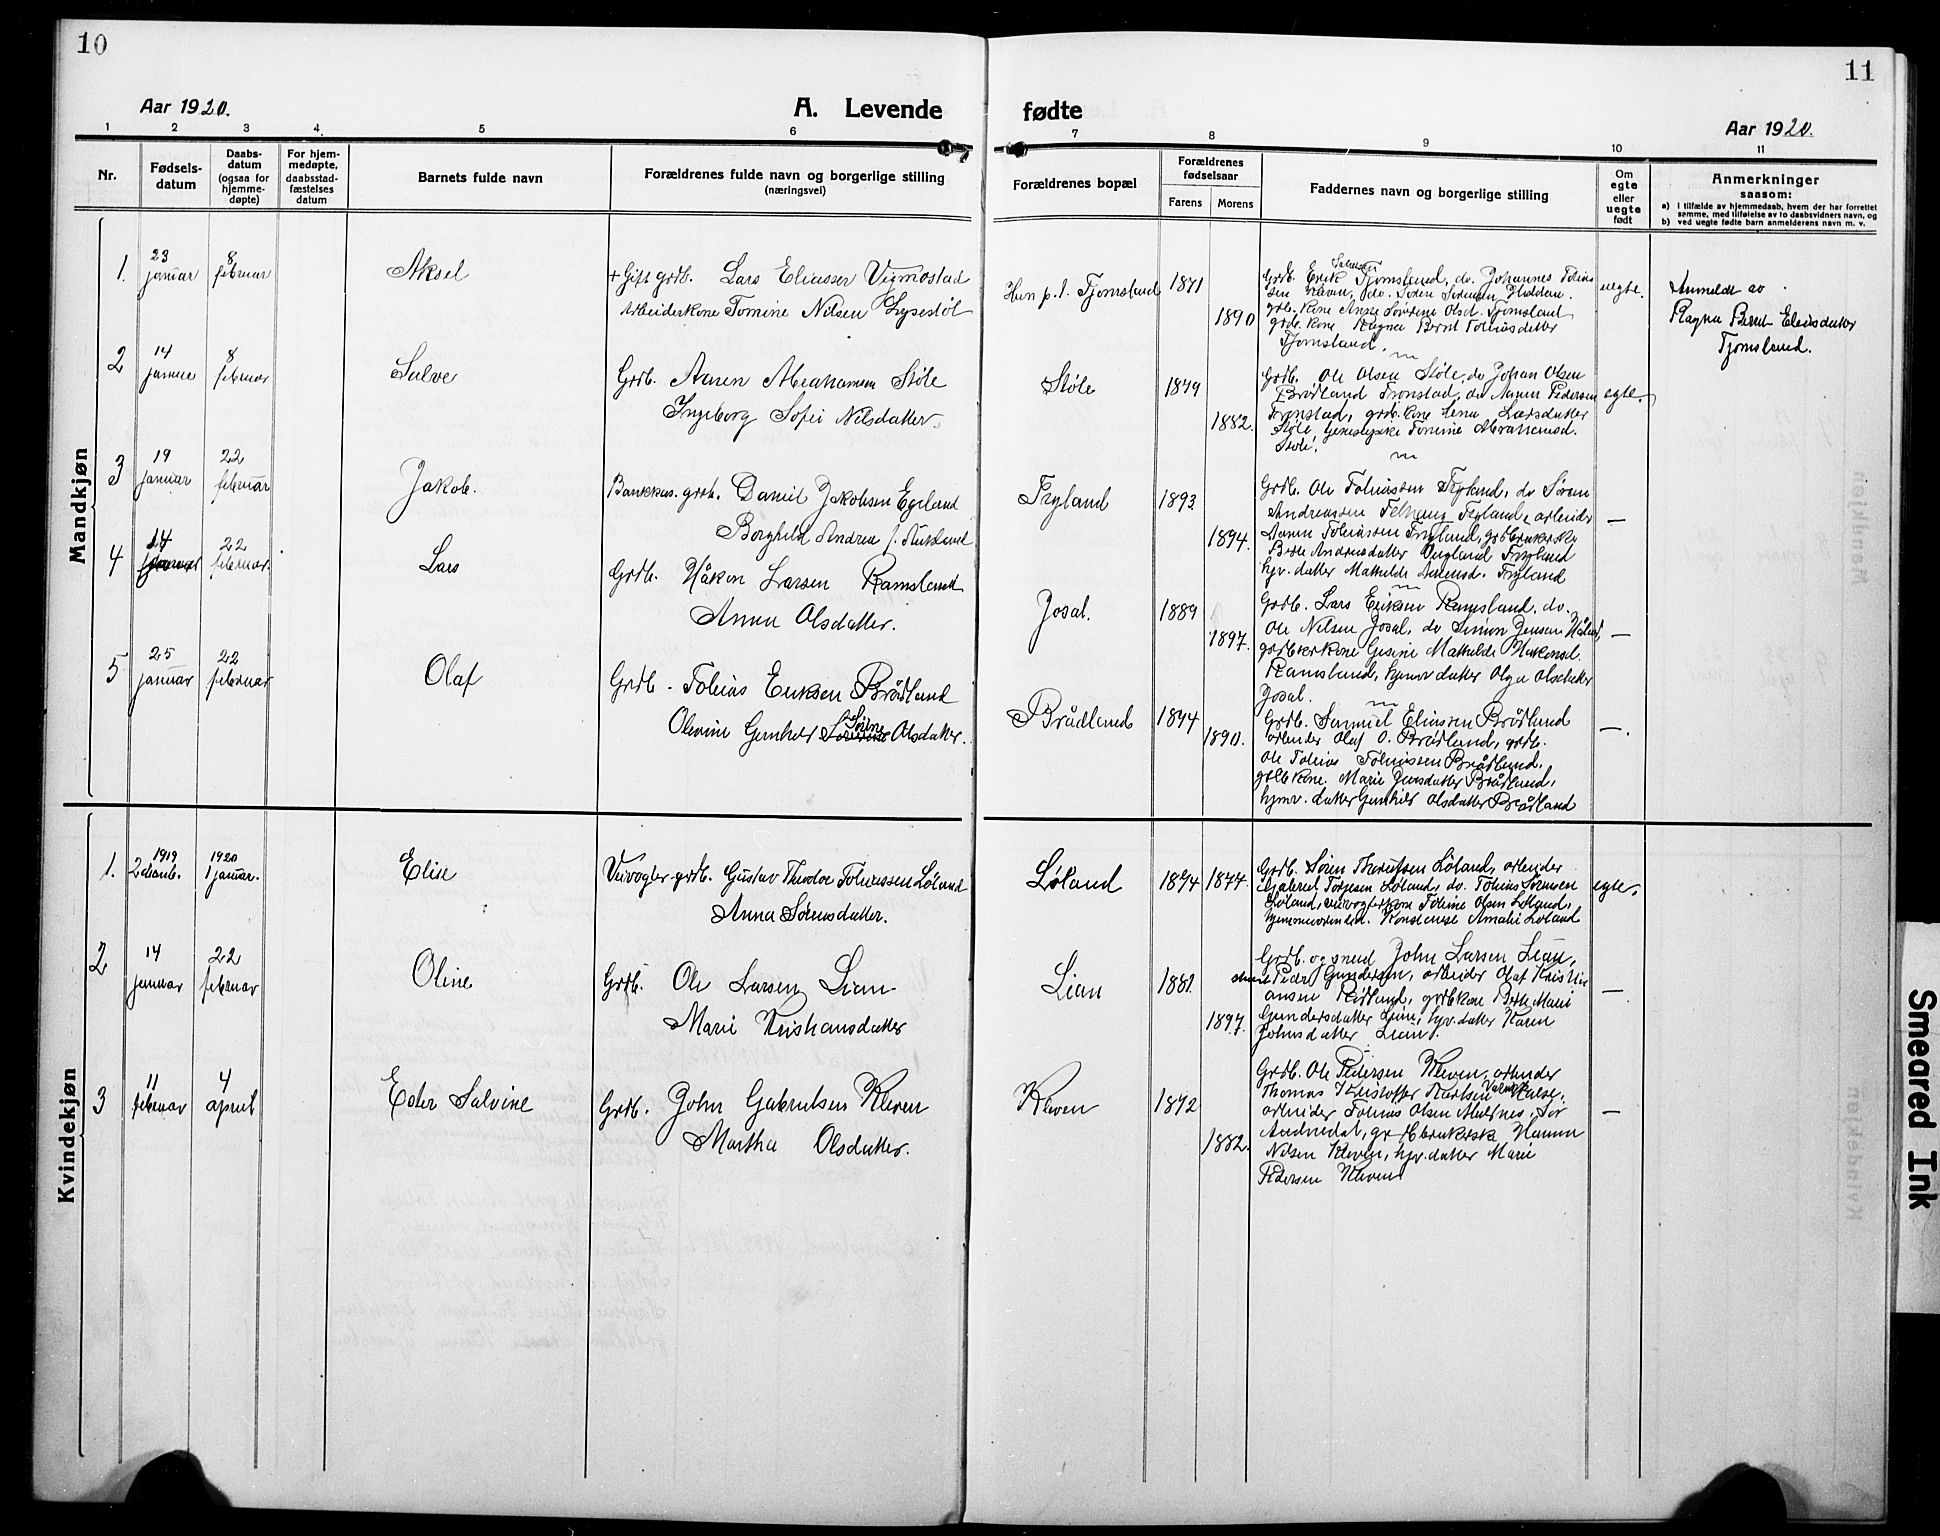 10
11
Aar 1920.
A. Levende fødte
Aar 1920.
1 2 3 4 5 6 7 8 9 10 11
Nr.
Fødsels-
datum
Daabs-
datum
(ogsaa for
hjemme-
døpte)
For hjem-
medøpte,
daabsstad-
fæstelses
datum
Barnets fulde navn
Forældrenes fulde navn og borgerlige stilling
(næringsvei)
Forældrenes bopæl
Forældrenes
fødselsaar
Farens Morens
Faddernes navn og borgerlige stilling
Om
egte
eller
uegte
født
Anmerkninger
saasom:
a) I tilfælde av hjemmedaab, hvem der har forrettet
samme, med tilføielse av to daabsvidners navn, og
b) ved uegte fødte barn anmelderens navn m. v.
Mandkjøn
1. 23 januar 8 februar Aksel
+ Gift grdb. Lars Eliassen Vigmostad
Arbeiderkone Tomine Nilsen Lysestøl
Hun p.t. Tjomsland 1871
1890
Grdb. Erik Salvesen Tjomsland, do. Johannes Tobias
sen Kleven, do. Søren Sørensen
grbr. kone Anne Sørine Olsd. Tjomsland
grdb. kone Ragna Bernt Tobiasdatter
Tjomsland.
uegte.
Anmeldt av
Ragna Bernt Eliasdatter
Tjomsland.
2 14 januar 8 februar Salve
Grdb. Aanen Abrahamsen Støle
Ingeborg Sofie Nilsdatter.
Støle 1879
1882.
Grdb. Ole Olsen Støle, do Johan Olsen
Brødland Tronstad, do Aanen Pedersen
Tronstad, grdb. kone Lena Larsdatter
Støle, Tomine Abrahamsd.
Støle.
egte.
3 19 januar 22 februar Jakob.
Bankkas. grdb. Daniel Jakobsen Egeland
Borghild Andrea f. Aukland
Fryland 1893
1894.
Grdb. Ole Tobiassen Fryland, do Søren
Andreassen Fryland, arbeider
Aanen Tobiassen Fryland, grdbrukersk
Berte Andreasdatter Fryland
hjv. datter Mathilde Aanensd. Fryland
—
4 14 22 februar. Lars
Grdb. Håkon Larsen Ramsland
Anna Olsdatter.
Josal. 1889
1897.
Grdb. Lars Eriksen Ramsland, do.
Ole Nilsen Josal, do Simon Jensen
grdbrkone Gesine Mathilde Håkonsd.
Ramsland, hjmv datter Olga Olsdatter
Josal.
—
5 25 januar 22 februar Olaf
Grdb. Tobias Eriksen Brådland
Olevine Gunhild Sørine Olsdatter.
Brådland 1874
1890.
Grdb. Samuel Eliassen Brådland
arbeider Olaf O. Brådland, grdb.
Ole Tobias Tobiassen Brådland,
grdb kone. Marie Jensdatter Brådland,
hjmv. datter Gunhild Olsdatter Brådland
—.
Kvindekjøn
1. 1919 2 decmb. 1920 1 januar. Elise
Veivogter grdb. Gustav Theodor Tobiassen Løland
Anna Sørensdatter.
Løland 1874 1877.
Grdb. Søren Løland, arbeider
Gabriel Torjesen Løland, do. Tobias Sørensen
Løland, veivogterkone Tobine Olsen Løland,
Konstanse Amalie Løland
egte.
2 14 januar 22 februar Oline
Grdb. Ole Larsen Lian
Marie Kristiansdatter
Lian 1881.
1897.
Grdb. og smed John Larsen Lian,
Peder Gundersen, arbeider Olaf Kristi
ansen Rødland, grdbkone Berte Marie
Gundersdatter Lian, hjv. datter Karen
Johnsdatter Lian.
—
3 11 februar 4 april Ester Salvine
Grdb. John Gabrielsen Kleven
Martha Olsdatter.
Kleven 1872
1882.
Grdb. Ole Pedersen Kleven, arbeider
Thomas Kristoffer Karlsen
arbeider Tobias Olsen Sør
Audnedal, grdbrukersk Hanna
Nilsen Kleven, hjv. datter Marie
Pedersen Kleven
—
Smeared Ink